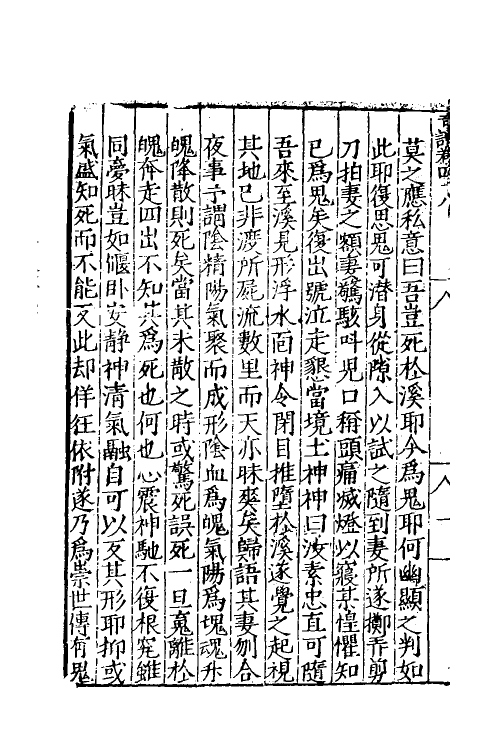 莫之應私意曰吾豈死於溪耶今為鬼耶何幽顯之判如
此耶復思鬼可潜身從隙入以試之隨到妻所遂擲弄剪
刀拍妻之額妻驚駭呌児口稱頭痛滅燈以寢某惶懼知
已為鬼矣復出號泣走懇當境土神神曰汝素忠直可隨
吾來至溪見形浮水面神令閉目推墮於溪遂覺之起視
其地已非渡所屍流數里而天亦昧爽矣歸語其妻刎合
夜事予謂陰精陽氣聚而成形陰血為魄氣陽為塊魂升
魄降散則死矣當其未散之時或驚死誤死一旦䰟離於
魄奔走四出不知其為死也何也心震神馳不復根究雖
同夣昧豈如偃卧安静神清氣融自可以反其形耶抑或
氣盛知死而不能反此却佯狂依附遂乃為祟世傳有鬼